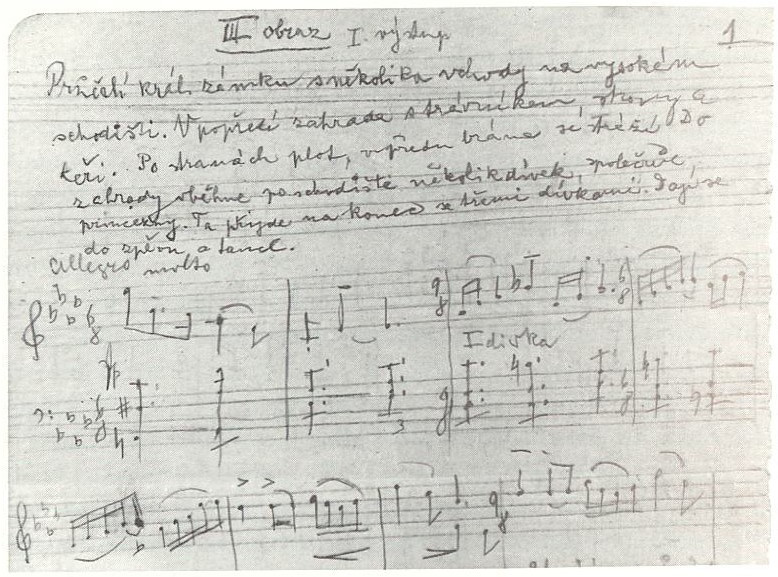 III obraz I. výstup 1
Průčelí král. zámku s několika vchody na vysokém
schodišti. V popředí zahrada s trávníkem, stromy a
keři. Po stranách plot, vpředu brána se stráží. Do
zahrady vběhne po schodiště několik dívek, společnic
princezny. Ta přijde na konec se třemi dívkami. Dají se
do zpěvu a tance.
Allegro molto
9
8
6
8
I dívka
6
8
9
8